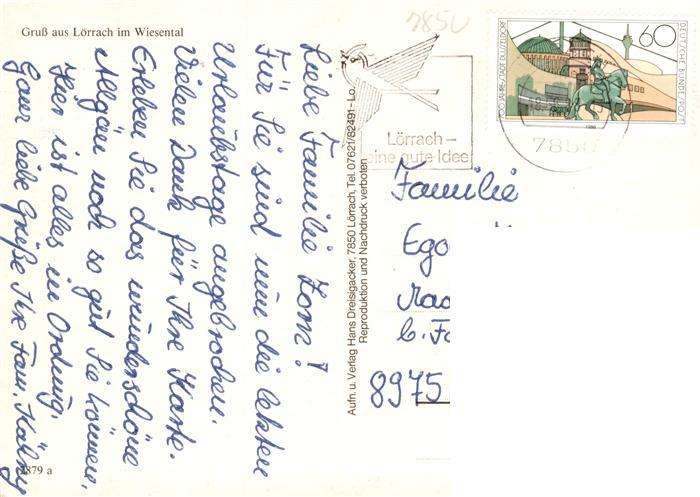 Gruß aus Lörrach im Wiesental
Liebe Familie Zorn!
Für Sie sind nun die letzten
Urlaubstage angebrochen.
Vielen Dank für Ihre Karte.
Erleben Sie das wunderschöne
Allgäu noch so gut Sie können.
Hier ist alles in Ordnung.
Ganz liebe Grüße Ihre Fam.
879 a
Aufn. u. Verlag Hans Dreisigacker, 7850 Lörrach, Tel. 07621/82491-Lo.
Reproduktion und Nachdruck verboten
7850
Lörrach –
eine gute Idee
7850
60
DEUTSCHE BUNDESPOST
700 JAHRE STADT DÜSSELDORF
1988
Familie
Ego
8975